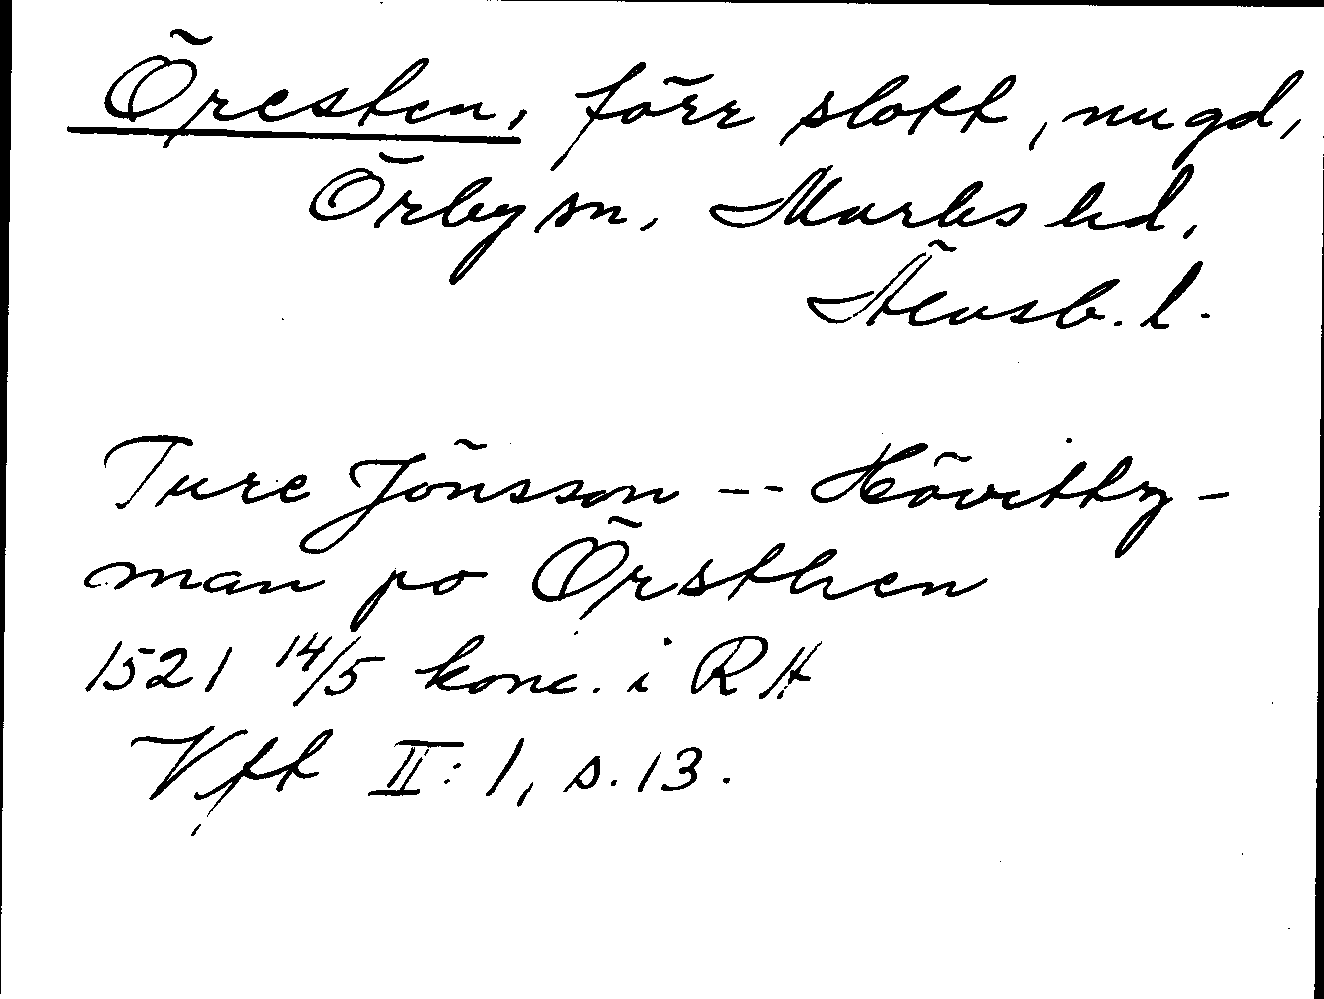 Öresten, förr slott, nu gd,
Örby sn, Marks hd,
Älvsb. l.
Ture Jönsson -- Hövitty-
man po Örsthen
1521 14/5 konc. i RH
Vfft II: 1, s. 13.